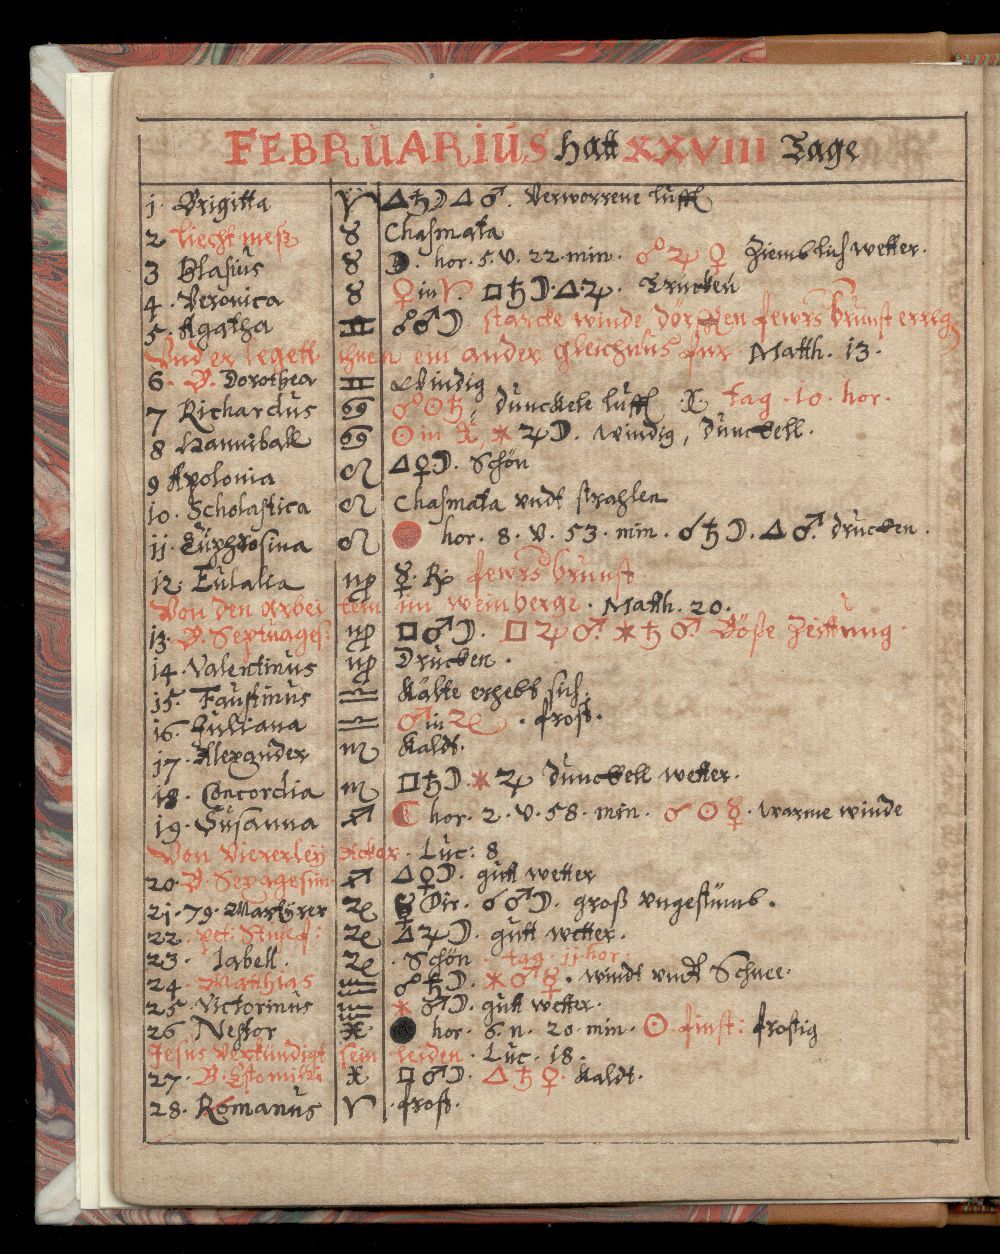 FEBRUARIUS hatt XXVIII Tage
1. Brigitta ♈ △♄☽△♂. Verworrene lufft
2 Liechtmess ♉ Chasmata
3 Blasius ♉ ☽. hor. 5. V. 22. min. ☍♃♀ Ziemblich wetter.
4. Veronica ♉ ♀ in ♈. □♄☽. △♃. Trucken
5. Agatha ♊ ☍♂☽ starcke winde dörfften fewrsbrunst erreg
Vnd er legett ihnen ein ander gleichnus für. Matth. 13.
6. B. Dorothea ♊ Windig
7 Richardus ♋ ☍☉♄, dunckele lufft. X. tag. 10. hor.
8 Hanniball ♋ ☉ in ♓ ⚹♃☽. windig, dunckell.
9 Apolonia ♌ △♀☽. Schön
10. Scholastica ♌ Chasmata vndt strahlen
11. Euphrosina ♌ hor. 8. V. 53. min. ☌♄☽. △♂. drucken.
12. Eulalia ♍ ☿. ℞ fewrsbrunst
Von den Arbeitern im weinberge. Matth. 20.
13. B. Septuages: ♍ □♂☽. □♃♂. ⚹♄♂ Böße Zeittung.
14. Valentinus ♍ Drucken.
15. Faustinus ♎ Kälte erhebt sich.
16. Juliana ♎ ♂ in ♑. frost.
17. Alexander ♏ Kaldt.
18. Concordia ♏ □♄☽. ⚹♃ dunckell wetter.
19. Susanna ♐ ☾ hor. 2. V. 58. min. ☌☉☿. warme winde
Von Viererley Acker. Luc: 8
20. B. Sexagesim. ♐ △♀☽. gutt wetter
21. 79. Martyrer ♑ ☿ Dir. ☌♂☽. groß vngestümb.
22. Pet: Stulf: ♑ △♃☽. gutt wetter.
23. Jabell. ♑ . Schön. tag 11. hor.
24. Matthias ♒ ☍♄☽. ⚹♂☿. windt vndt Schnee.
25. Victorinus ♒ ⚹♂☽. gutt wetter.
26 Nestor ♓. hor. 6. n. 20. min. ☉. finst: frostig
Jesus Verkündigt sein leiden. Luc. 18.
27. B. Estomihi ♓ □♂☽. △♄♀. Kaldt.
28. Romanus ♈ . frost.